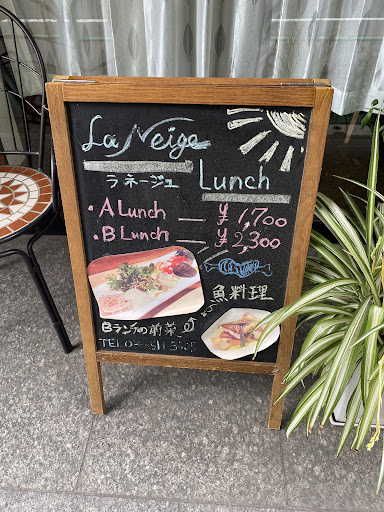 La Neige
ラネージュ Lunch
・A Lunch — ¥1,700
・B Lunch — ¥2,300
魚料理
Bランチの前菜
TEL 03